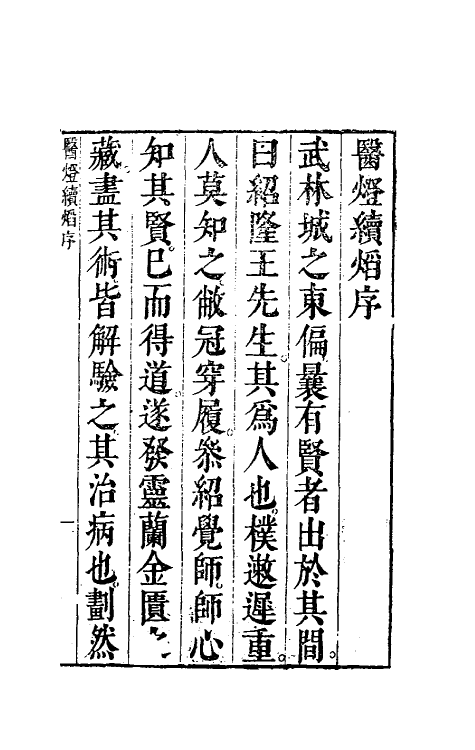 醫燈續焰序
武林城之東偏曩有賢者出於其間。
曰紹隆王先生。其爲人也。樸遬遲重。
人莫知之。敝冠穿履。叅紹覺師。師心
知其賢。已而得道。遂發靈蘭金匱
藏。盡其術。皆解驗之。其治病也。劃然
醫燈續焰序
一